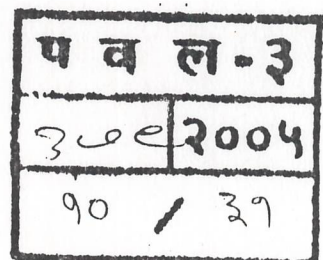 प व ल-३
२००५
१० / ३१